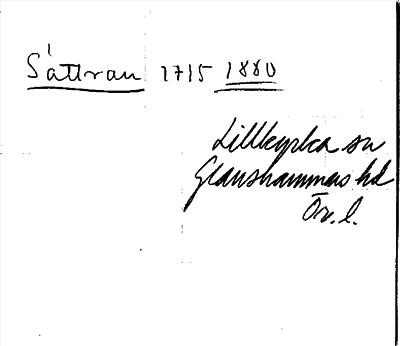 Sättran 1715 1880
Lillkyrka sn
Glanshammars hd
Ör. l.